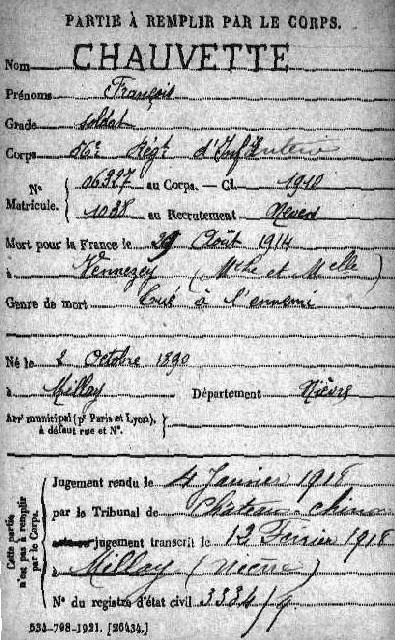 PARTIE À REMPLIR PAR LE CORPS.
Nom CHAUVETTE
Prénoms François
Grade soldat
Corps 56e Régt d'Infanterie
N° Matricule. 06927 au Corps. — Cl. 1910
1088 au Recrutement Nevers
Mort pour la France le 29 Août 1914
à Vennezey (Mthe et Mlle)
Genre de mort Tué à l'ennemi
Né le 2 Octobre 1890
à Millay Département Nièvre
Arrt municipal (pr Paris et Lyon), à défaut rue et N°.
Cette partie n'est pas à remplir par le Corps.
Jugement rendu le 4 Janvier 1918
par le Tribunal de Château-Chinon
jugement transcrit le 12 Février 1918
à Millay (Nièvre)
N° du registre d'état civil 3334/9
534-708-1921. [26434.]